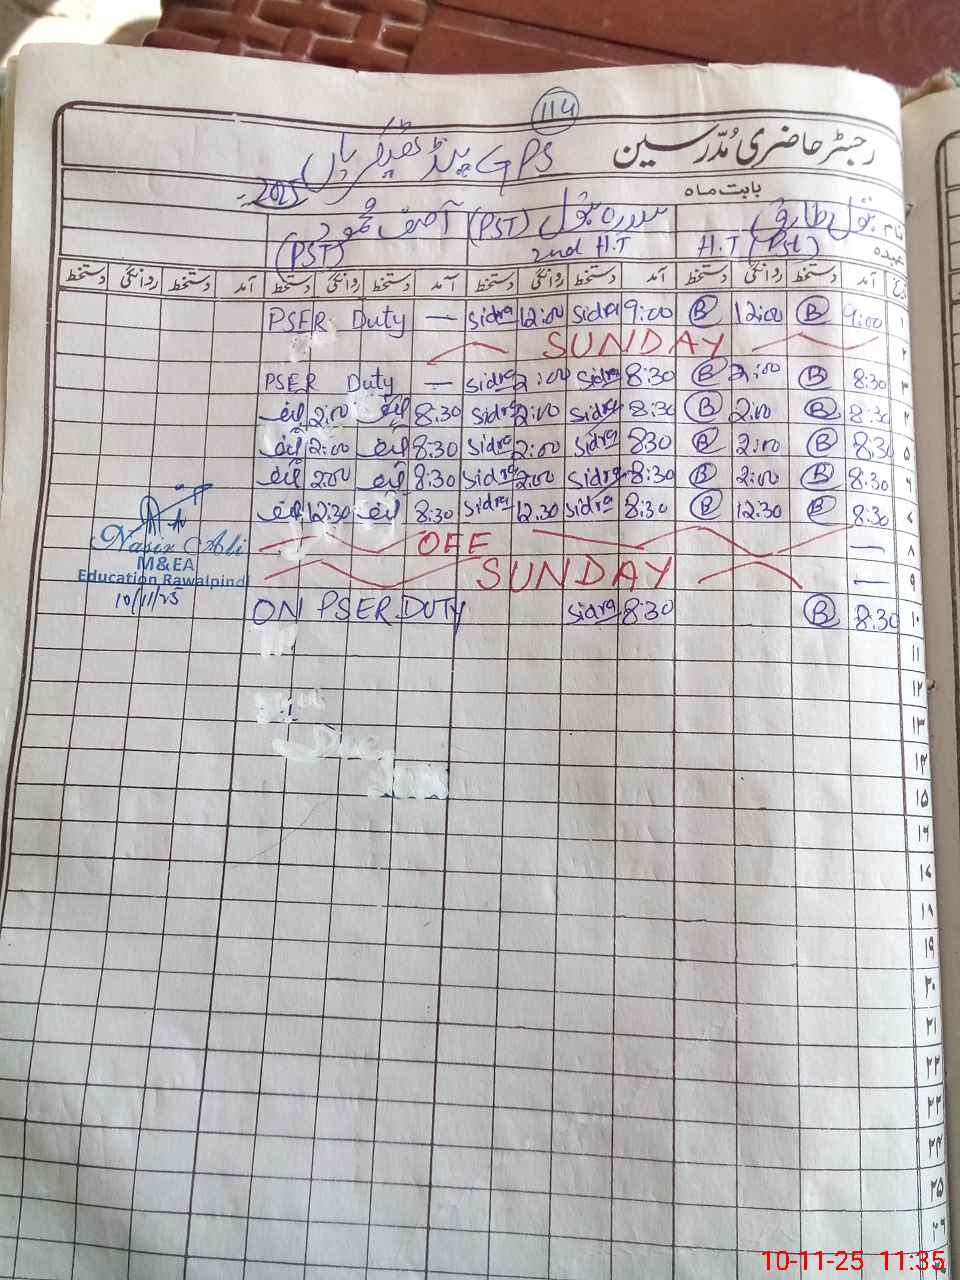 114
رجسٹر حاضری مُدّرسین
GPS پنڈ
بابت ماہ 2025
نام بتول طارق سدرہ بتول (PST) آصف محمود (PST)
عہدہ H.T (Pst) 2nd H.T
آمد دستخط روانگی دستخط آمد دستخط روانگی دستخط آمد دستخط روانگی دستخط آمد دستخط روانگی دستخط
۱ 9:00 B 12:00 B 9:00 Sidra 12:00 Sidra — PSER Duty
۲ SUNDAY
۳ 8:30 B 2:00 B 8:30 Sidra 2:00 Sidra — PSER Duty
۴ 8:30 B 2:00 B 8:30 Sidra 2:00 Sidra 8:30 آصف 2:00 آصف
۵ 8:30 B 2:00 B 8:30 Sidra 2:00 Sidra 8:30 آصف 2:00 آصف
۶ 8:30 B 2:00 B 8:30 Sidra 2:00 Sidra 8:30 آصف 2:00 آصف
۷ 8:30 B 12:30 B 8:30 Sidra 12:30 Sidra 8:30 آصف 12:30 آصف
۸ — OFF
۹ — SUNDAY
۱۰ 8:30 B 8:30 Sidra ON PSER DUTY
Nasir Ali
M&EA
Education Rawalpindi
10/11/25
۱۱
۱۲
۱۳
۱۴
۱۵
۱۶
۱۷
۱۸
۱۹
۲۰
۲۱
۲۲
۲۳
۲۴
۲۵
۲۶
10-11-25 11:35